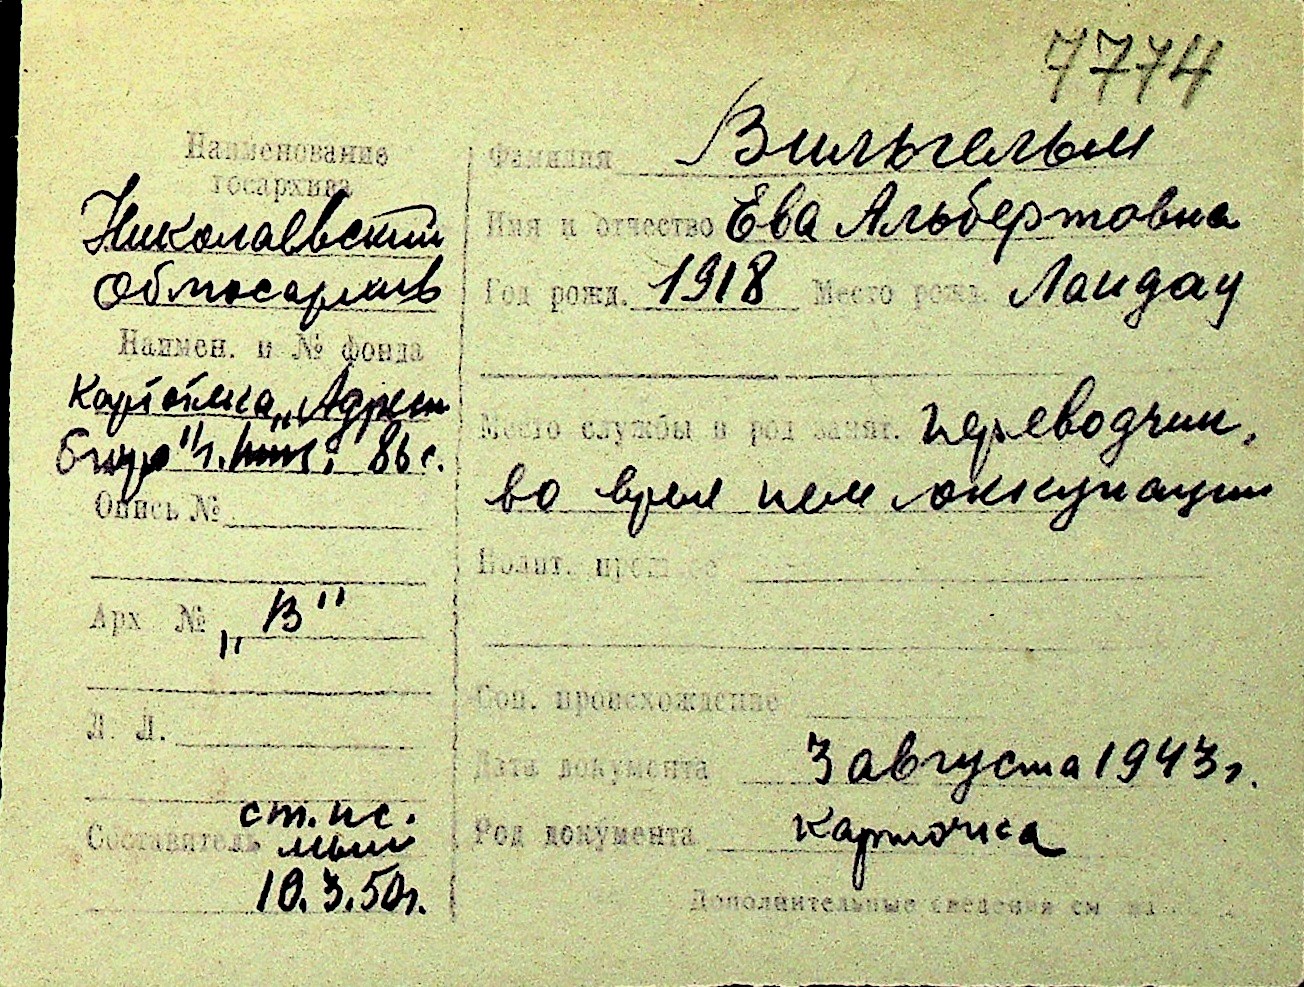 7774
Наименование
госархива
Николаевский
Облгосархив
Наимен. и № фонда
Картотека „Адресн
бюро" г. 86 с.
Опись №
Арх №
„В"
Л. Л.
Составитель
ст. нс.
10.3.50г.
Фамилия Вильгельм
Имя и отчество Ева Альбертовна
Год рожд. 1918 Место рожд. Ландау
Место службы и род занят. переводчик,
во врем нем оккупации
Полит. прошлое
Соц. происхождение
Дата документа 3 августа 1943г.
Род документа карточка
Дополнительные сведения см на